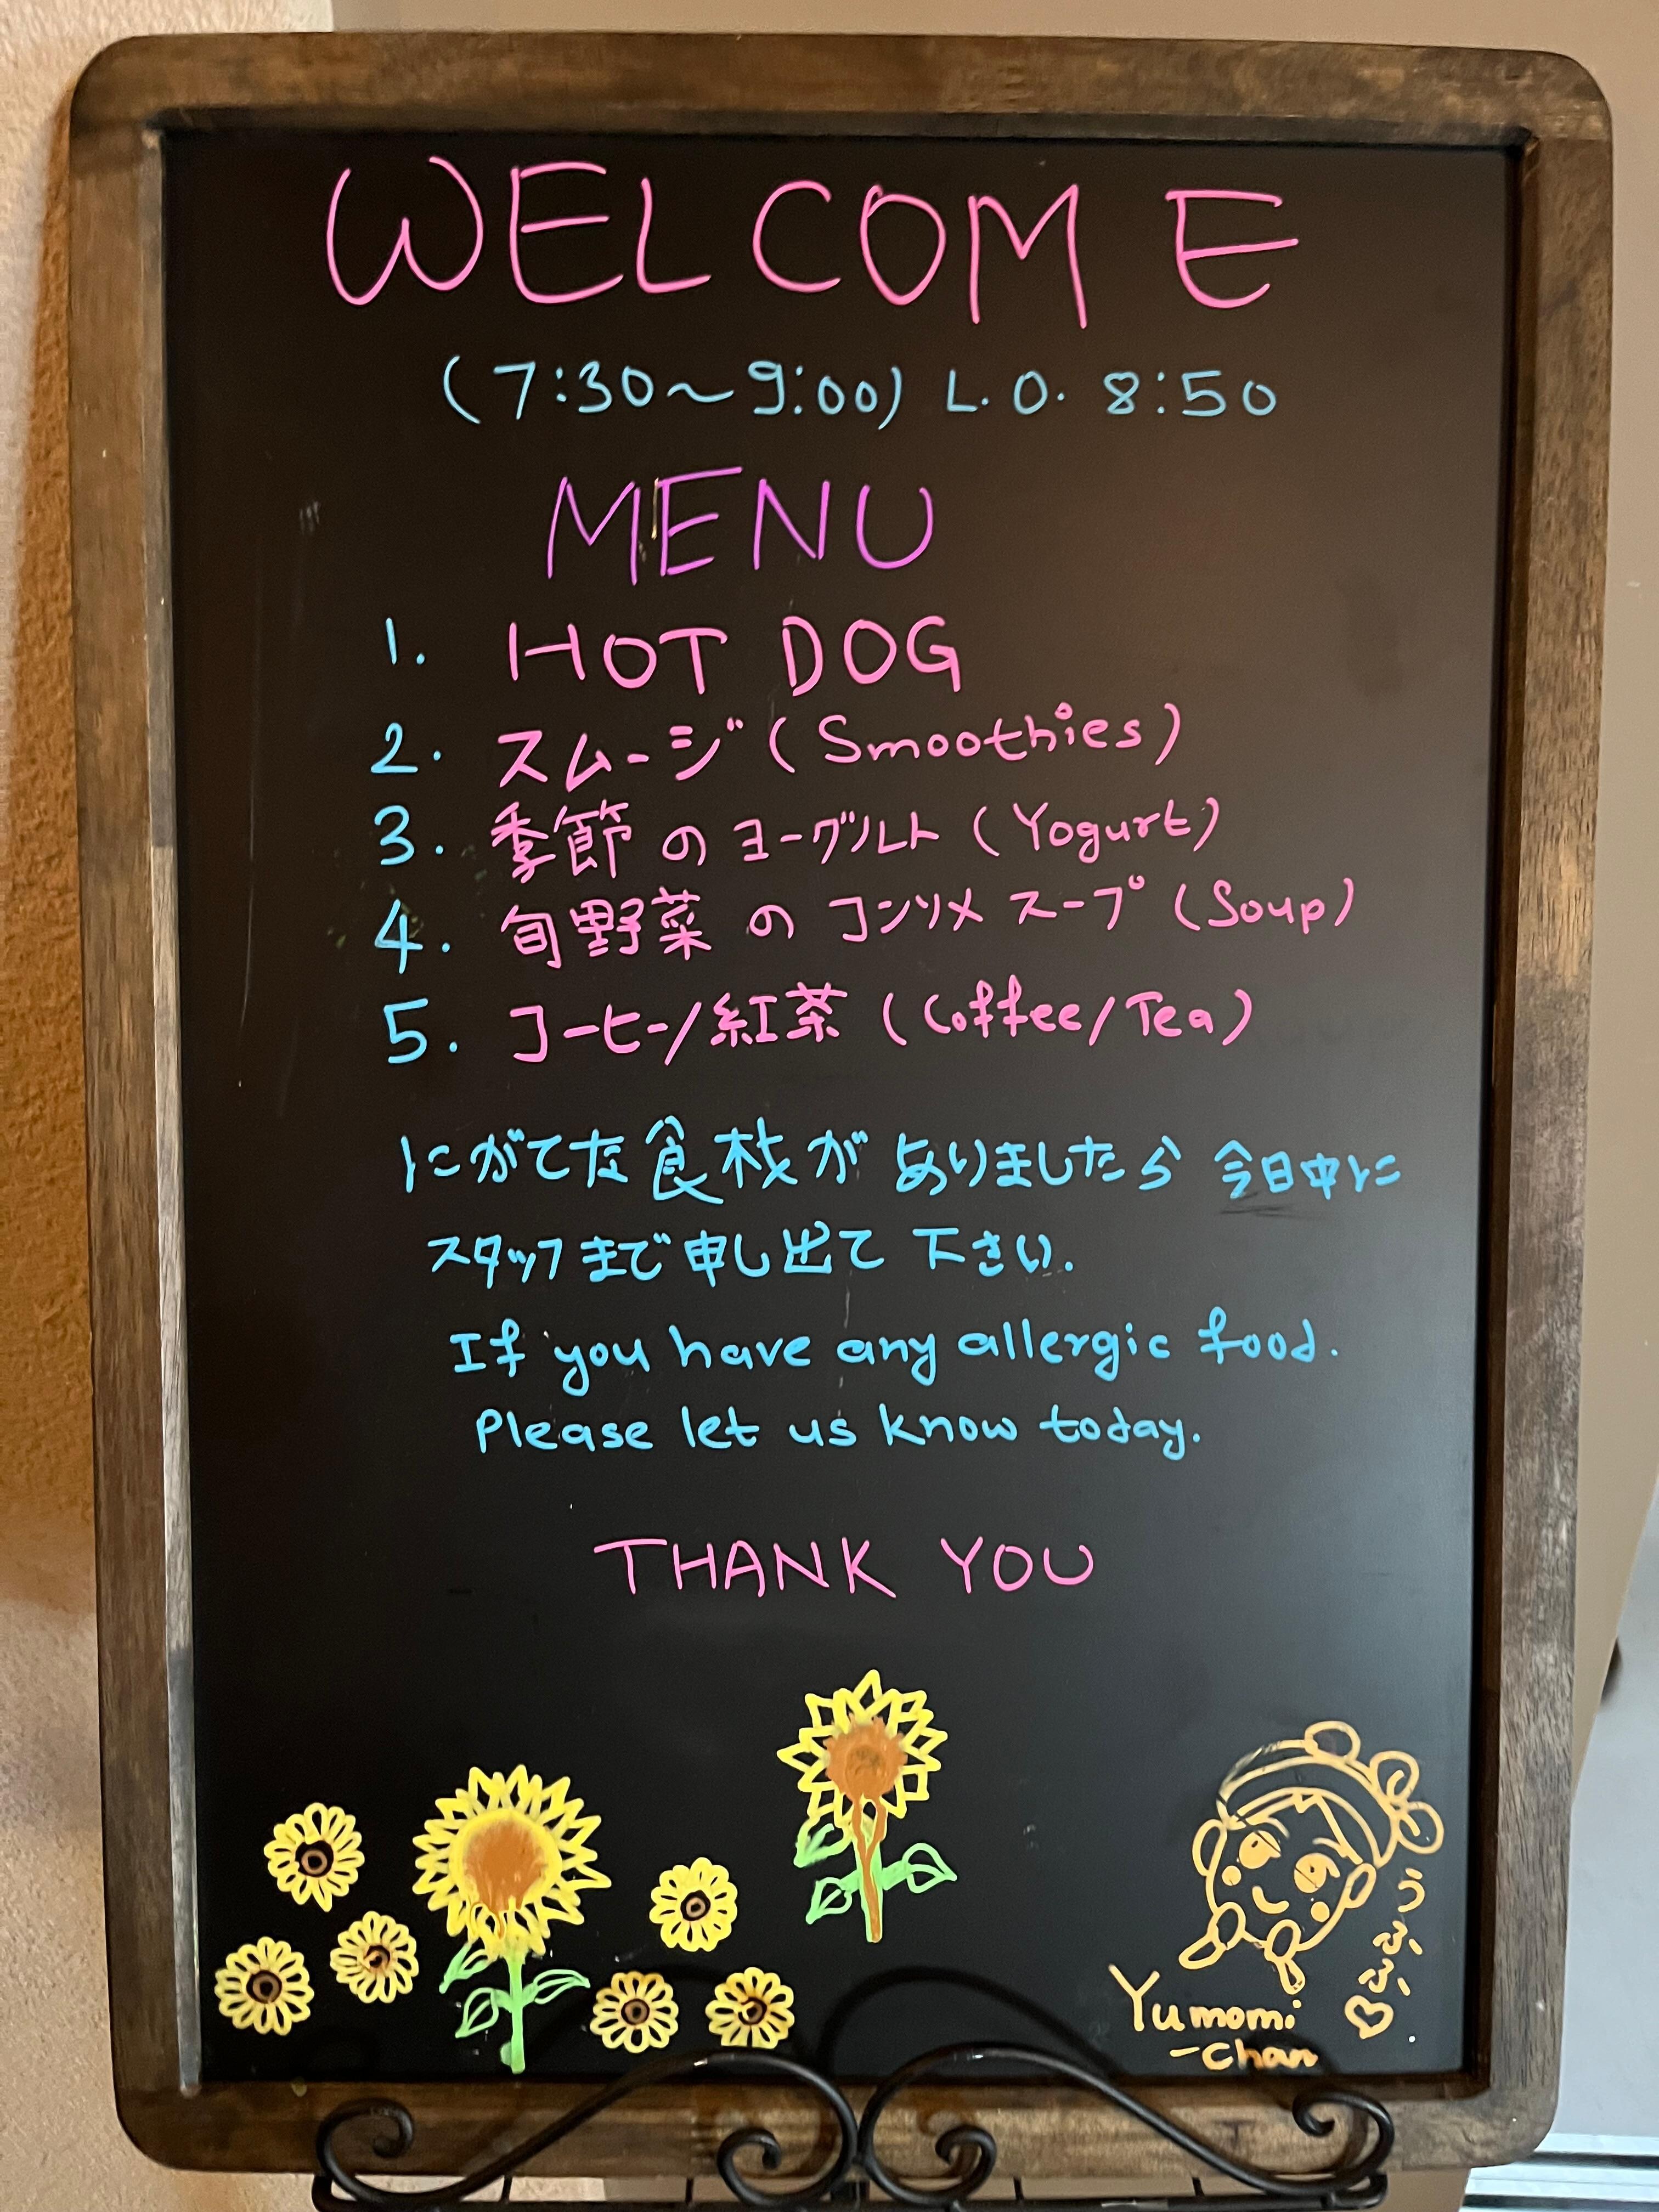 WELCOME
(7:30〜9:00) L.O. 8:50
MENU
1. HOT DOG
2. スムージ (Smoothies)
3. 季節のヨーグルト (Yogurt)
4. 旬野菜のコンソメスープ (Soup)
5. コーヒー/紅茶 (Coffee/Tea)
にがてな食材がありましたら今日中に
スタッフまで申し出て下さい.
If you have any allergic food.
Please let us know today.
THANK YOU
Yumomi
-chan